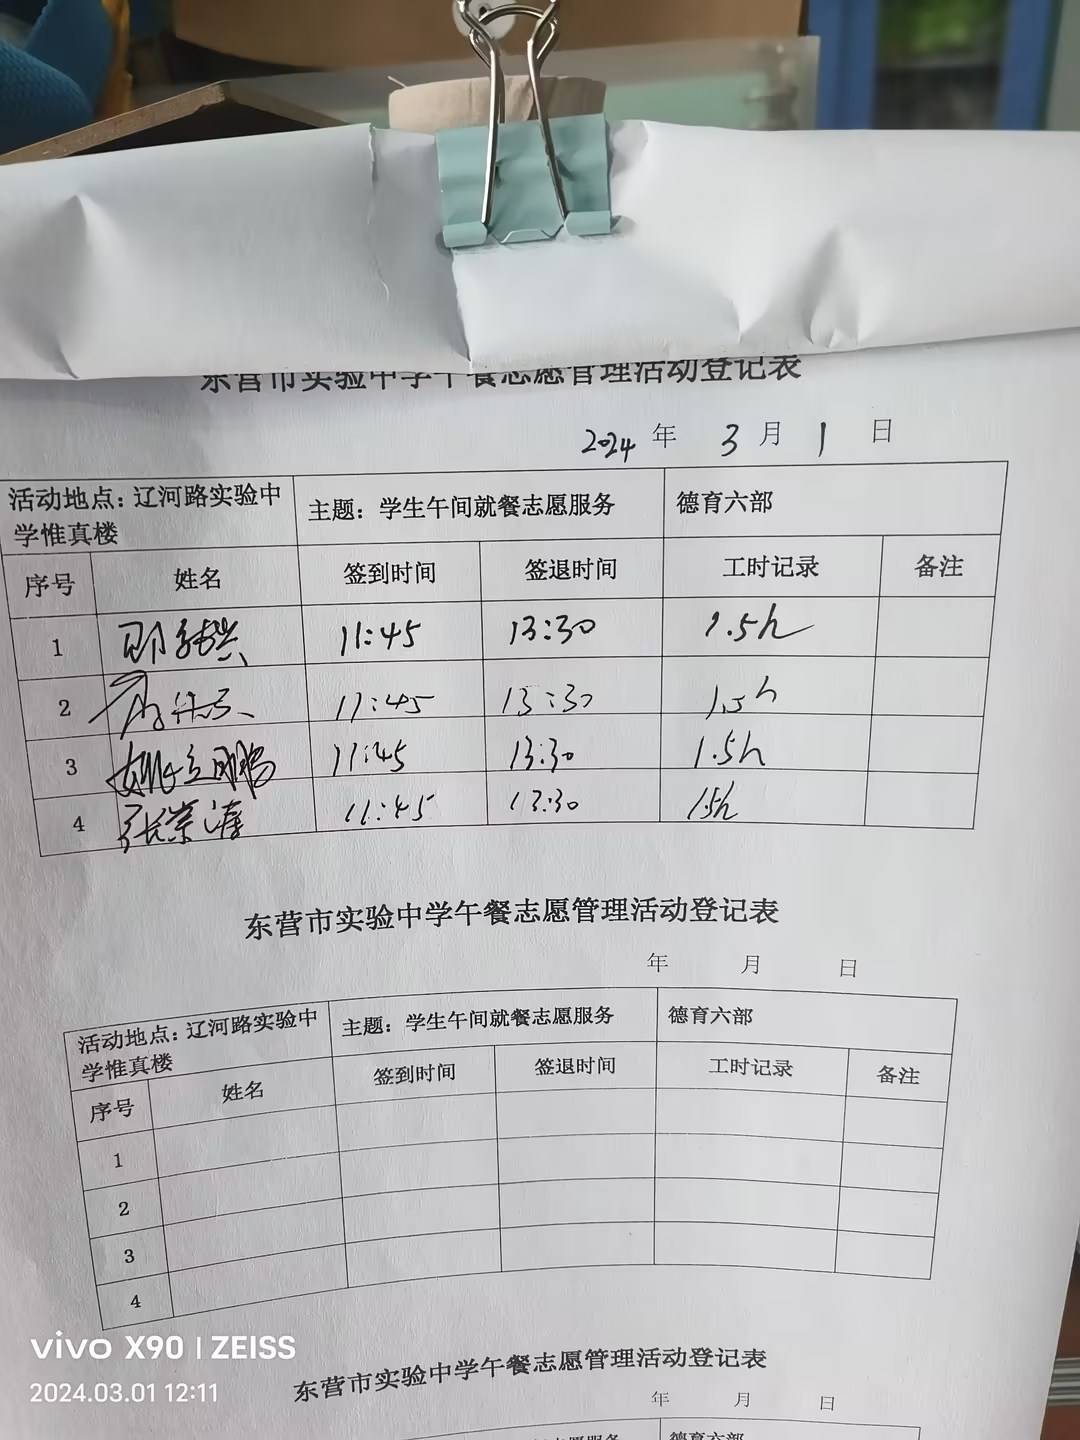 东营市实验中学午餐志愿管理活动登记表
2024 年 3 月 1 日
活动地点：辽河路实验中学惟真楼 主题：学生午间就餐志愿服务 德育六部
序号 姓名 签到时间 签退时间 工时记录 备注
1 11:45 13:30 1.5h
2 11:45 13:30 1.5h
3 姚立鹏 11:45 13:30 1.5h
4 张崇涛 11:45 13:30 1.5h
东营市实验中学午餐志愿管理活动登记表
年 月 日
活动地点：辽河路实验中学惟真楼 主题：学生午间就餐志愿服务 德育六部
序号 姓名 签到时间 签退时间 工时记录 备注
1
2
3
4
东营市实验中学午餐志愿管理活动登记表
年 月 日
vivo X90 | ZEISS
2024.03.01 12:11